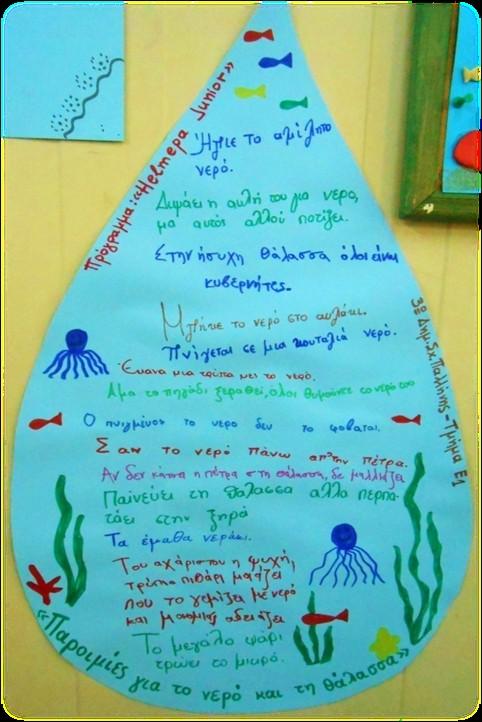 Πρόγραμμα: «Helmepa Junior»
Ήπιε το αμίλητο
νερό.
Διψάει η αυλή του για νερό,
μα αυτός αλλού ποτίζει.
Στην ήσυχη θάλασσα όλοι είναι
κυβερνήτες.
Μπήκε το νερό στο αυλάκι.
Πνίγεται σε μια κουταλιά νερό.
Έκανα μια τρύπα μες το νερό.
Άμα το πηγάδι ξεραθεί, όλοι θυμούνται το νερό του
Ο πνιγμένος το νερό δεν το φοβάται.
Σαν το νερό πάνω απ' την πέτρα.
Αν δεν κάτσει η πέτρα στη θάλασσα, δε μαλλιάζει
Παίνευε τη θάλασσα αλλά περπα-
τάει στην ξηρά
Τα έμαθα νεράκι.
Του αχάριστου η ψυχή,
τρύπιο πιθάρι μοιάζει
που το γεμίζει με νερό
και μονομιάς αδειάζει
Το μεγάλο ψάρι
τρώει το μικρό.
3ο Δημ. Σχ. Παλλήνης - Τμήμα Ε1
«Παροιμίες για το νερό και τη θάλασσα»